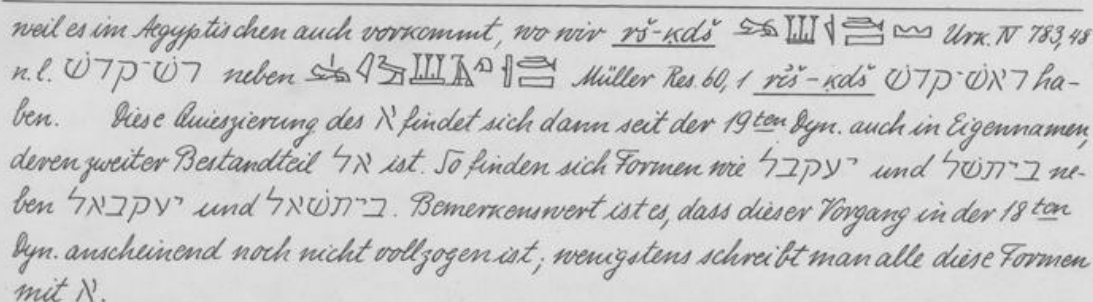 weil es im Aegyptischen auch vorkommt, wo wir rš-ḳdš Urk. IV 783,48
n.l. רש־קדש neben Müller Res. 60, 1 rỉš-ḳdš ראש־קדש ha-
ben. Diese Quieszierung des א findet sich dann seit der 19ten Dyn. auch in Eigennamen,
deren zweiter Bestandteil אל ist. So finden sich Formen wie יעקבל und ביתשל ne-
ben יעקבאל und ביתשאל. Bemerkenswert ist es, dass dieser Vorgang in der 18ten
Dyn. anscheinend noch nicht vollzogen ist; wenigstens schreibt man alle diese Formen
mit א.